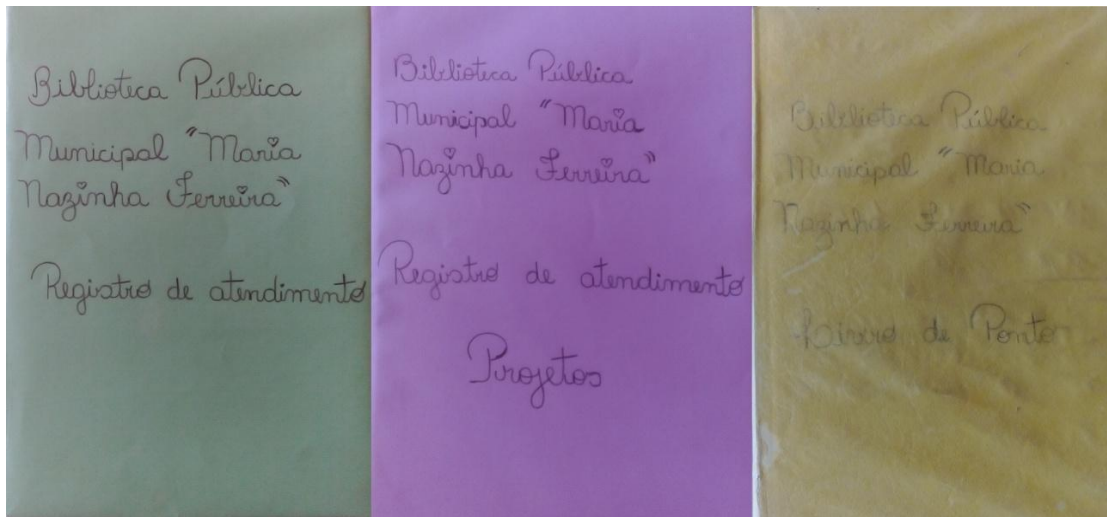 Biblioteca Pública
Municipal "Maria
Nazinha Ferreira"
Registro de atendimento
Biblioteca Pública
Municipal "Maria
Nazinha Ferreira"
Registro de atendimento
Projetos
Biblioteca Pública
Municipal "Maria
Nazinha Ferreira"
Livro de Ponto